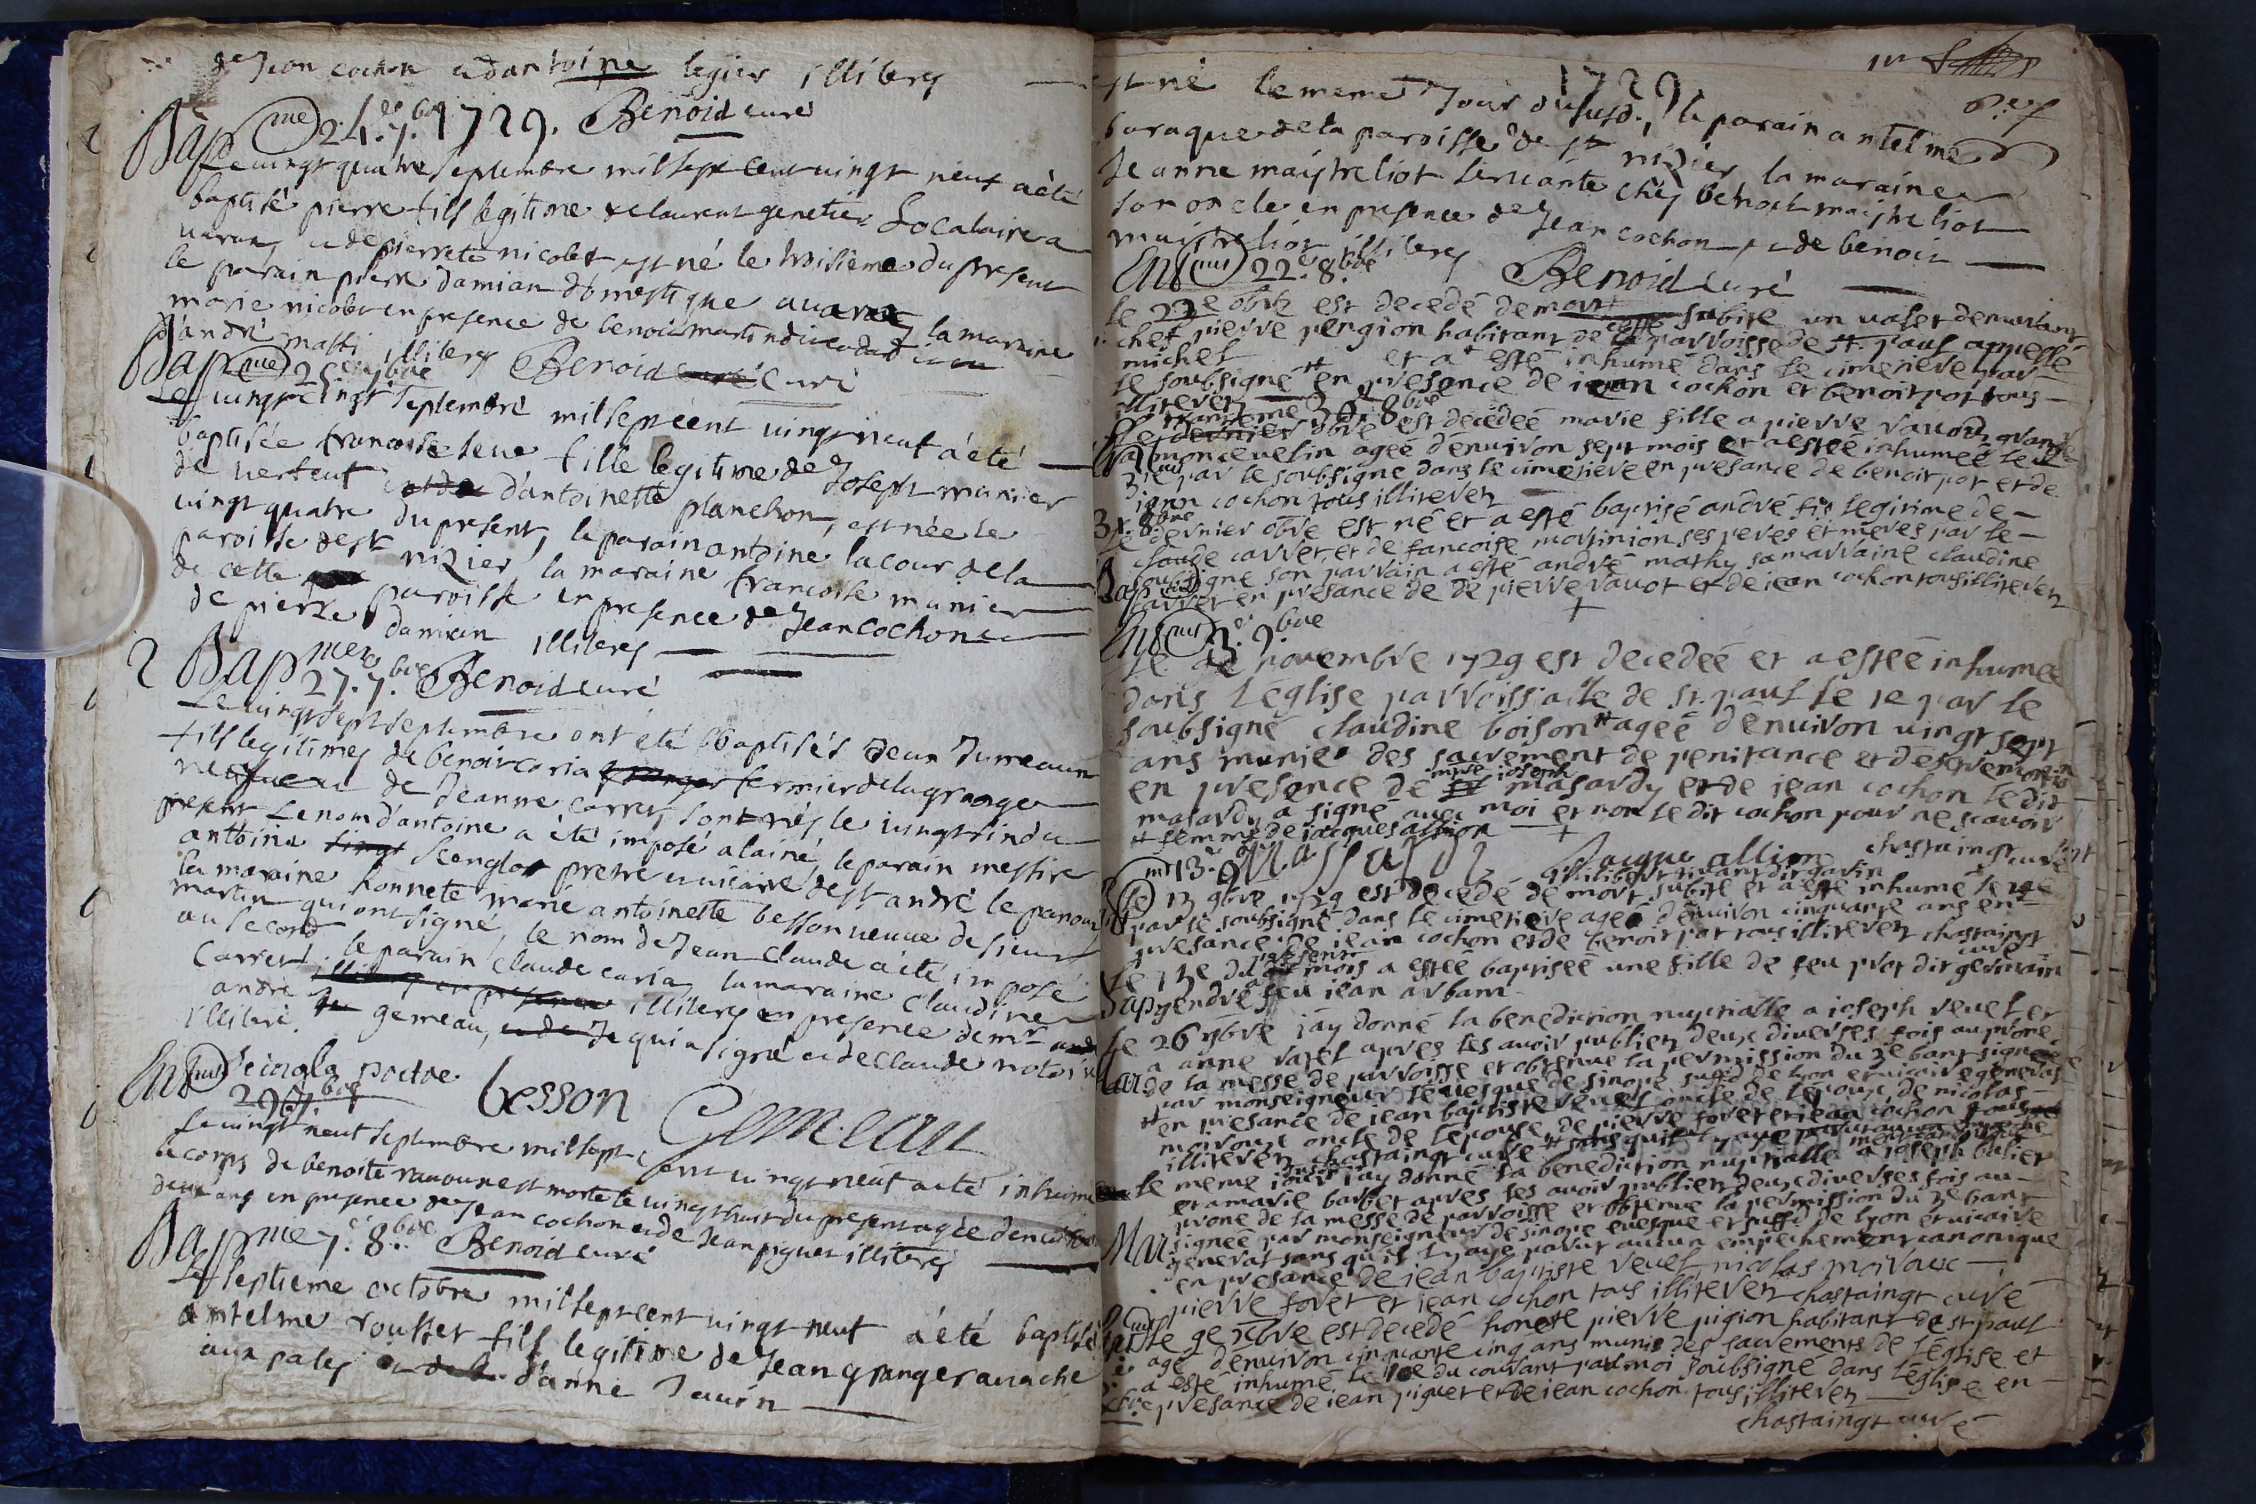 de Jean cochon et d'antoine legier illiteres
Bap me 24.e 7.bre 1729. Benoid curé
Le vingt quatre septembre mil sept cent vingt neuf a été
baptisé pierre fils legitime de laurent genetier Locataire a
et de pierrete nicolet est né le troisieme du present
le parain pierre damian domestique la maraine
marie nicolet en presence de benoit martin
d'andré matti illiteres Benoid curé
Bap me 25 7bre
Le vingt cinq septembre mil sept cent vingt neuf a été
baptisée francoise fille legitime de Joseph munier
de verfeut d'antoinette planchon, est née le
vingt quatre du present, le parain antoine lacour de la
paroisse de st nizier la maraine francoise munier
de cette paroisse en presence de Jean cochon et
de pierre damian illiteres
2 Bap mes 27.e 7.bre Benoid curé
Le vingt sept septembre ont été baptisés deux Jumeaux
fils legitimes de benoit caria fermier de la grange
de Jeanne carret, sont nés le vingt six du
present Le nom d'antoine a été imposé a lainé, le parain messire
antoine pretre et vicaire de st andré le panoux
la maraine honnete marie antoinette besson veuve de sieur
martin qui ont signé, le nom de Jean Claude a été imposé
au second le parain Claude caria, la maraine Claudine
Carret illiteres en presence de mr
andré gemeau, qui a signé et de Claude
illiteré.
Ent
29e 7.bre besson Gemeau
Le vingt neuf septembre mil sept cent vingt neuf a été inhumé
le corps de benoite morte le vingt huit du present agée d'environ
deux ans en presence de Jean cochon et de Jean piguet illiteres
Bap me 7.e 8.bre Benoid curé
Le septieme octobre mil sept cent vingt neuf a été baptisé
antelme rousset fils legitime de Jean granger
aux pales d'anne Jauvin
1729.
est né le meme Jour du susd., le parain antelme
baraque de la paroisse de st nizier la maraine
Jeanne maistreliot servante chés benoit maistreliot
son oncle en presence de Jean cochon et de benoit
maistreliot illiteres
Ent 22.e 8.bre Benoid curé
le 22e obre est decedé de mort subite un valet demeurant
chef pierre pengion habitant de cette parroisse de st. paul appellé
michel et a esté inhumé dans le cimetiere par
le soubsigné en presance de iean cochon et benoit pot tous
illiterez
30. 8bre
est decedeé marie fille a pierre
agée d'enuiron sept mois et a esteé inhumeé le
31e par le soubsigné dans le cimetiere en presance de benoit pot et de
iean cochon tous illiterez
31. 8bre
le dernier obre est né et a esté baptisé andré fis legitime de
claude carret et de fancoise martinion ses peres et meres par le
soubsigné son parrain a esté andré mathy sa marraine claudine
carret en presance de de pierre vauot et de iean cochon tous illiterez
Bap
Ent 3.e 9.bre
Le novembre 1729 est decedeé et a esteé inhumeé
dans l'église parroissialle de st. paul le 1e par le
soubsigné claudine boison # ageé d'enuiron vingt sept
ans munie des sacrement de penitance et d'extremontion
en presance de mre ioseph masardy et de iean cochon le dit
masardy a signé auec moi et non le dit cochon pour ne scauoir
# femme de iacques allion
Massardy Jacque allion chastaingt curé
13.e 9bre philibert
le 13 9bre 1729 est decedé de mort subite et a esté inhumé le 14e
par le soubsigné dans le cimetiere ageé d'enuiron cinquante ans en
presance de iean cochon et de benoit pot tous illiterez chastaingt
curé
Le 13e du present mois a esteé baptiseé une fille de feu prot dit germain
Bap gendre a feu iean arbant
le 26 9bre iay donné la benediction nuptialle a ioseph reuel et
a anne ravel apres les auoir publiez deux diverses fois au prone
Mar de la messe de parroisse et obtenue la permission du 3e bant signeé
par monseigneur l'euesque de sinope suffrd de lyon et vicaire general
# en presance de iean baptiste reuel oncle de l'epoux, de nicolas
moiroux oncle de l'epouse, de pierre foret et iean cochon tous
illiterez chastaingt curé
le meme iour iay donné la benediction nuptialle a ioseph balier
et a marie barbet apres les auoir publiez deux diverses fois au
prone de la messe de parroisse et obtenue la permission du 3e bant
signeé par monseigneur de sinope euesque et suffd de lyon et vicaire
Mar general sans qu'il y aye parut aucun empechement canonique
en presance de iean baptiste reuel, nicolas moiroux
pierre foret et iean cochon tous illiterez chastaingt curé
Ent le 9e est decedé honeste pierre pigion habitant de st paul
age d'enuiron cinquante cinq ans munis des sacrements de l'église et
a esté inhumé le 10e du courant par moi soubsigné dans l'église en
presance de iean piguet et de iean cochon tous illiterez
chastaingt curé